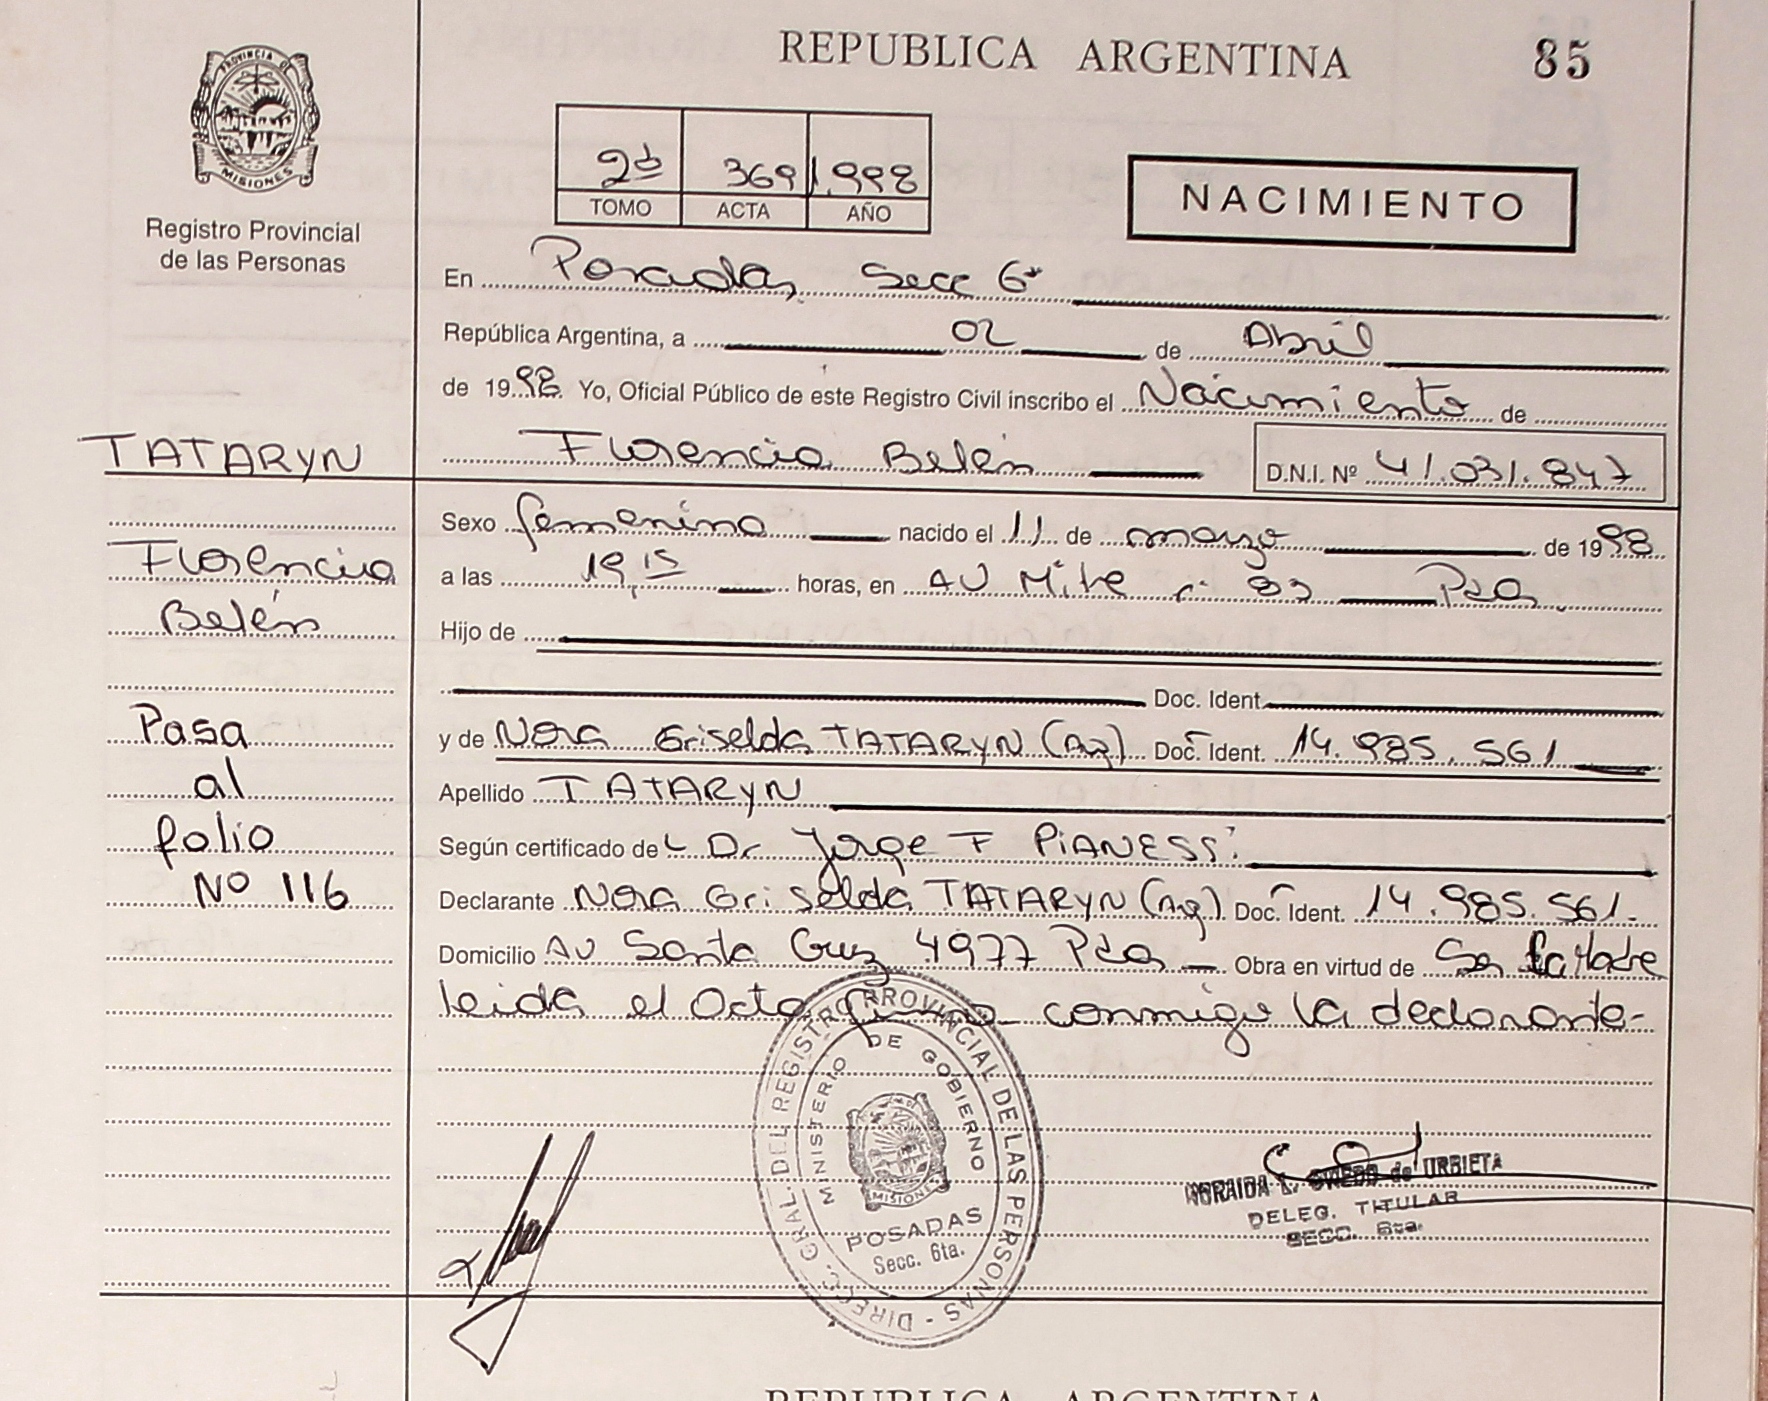 REPUBLICA ARGENTINA
85
PROVINCIA DE
MISIONES
Registro Provincial
de las Personas
2º 369 1.998
TOMO ACTA AÑO
NACIMIENTO
En Posadas, Secc 6ª
República Argentina, a 02 de Abril
de 1998 Yo, Oficial Público de este Registro Civil inscribo el Nacimiento de
TATARYN
Florencia Belén D.N.I. Nº 41.031.847
Sexo femenino nacido el 11 de marzo de 1998
Florencia
Belén
a las 19,15 horas, en AU Mitre nº Pdas
Hijo de
Doc. Ident.
Pasa
al
folio
Nº 116
y de Nora Griselda TATARYN (Ag) Doc. Ident. 14.985.561
Apellido TATARYN
Según certificado de Dr Jorge F PIANESSi
Declarante Nora Griselda TATARYN (Ag) Doc. Ident. 14.985.561-
Domicilio AU Santa Cruz 4977 Pdas Obra en virtud de Ser la Madre
leida el Acta firma conmigo la declarante-
DIRECC. GRAL. DEL REGISTRO PROVINCIAL DE LAS PERSONAS -
MINISTERIO DE GOBIERNO
MISIONES
POSADAS
Secc. 6ta.
OVIEDO de URBIETA
DELEG. TITULAR
SECC. 6ta.
REPUBLICA ARGENTINA